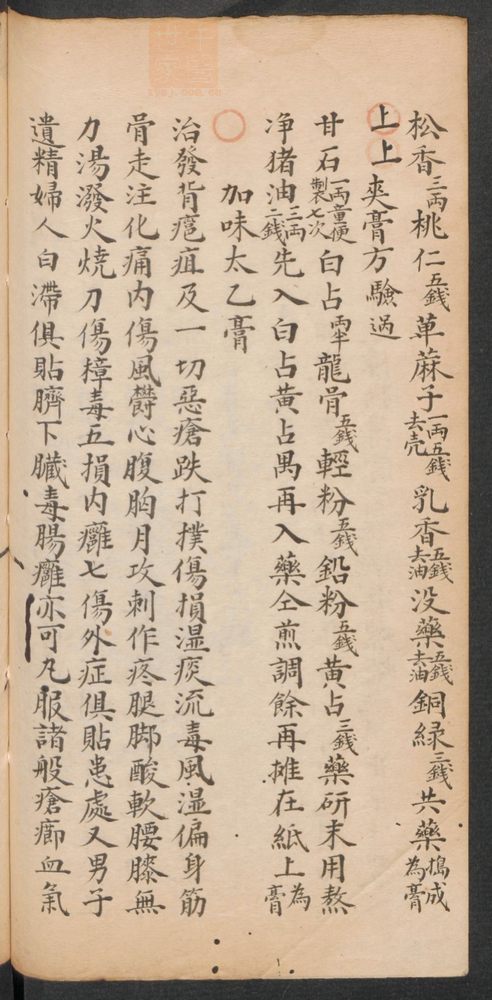 松香三兩桃仁五錢萆麻子一兩五錢去壳乳香五錢去油没藥五錢去油銅緑三錢共藥搗成為膏
上上夾膏方驗过
甘石一兩童便製七次白占兩半龍骨五錢輕粉五錢鉛粉五錢黃占三錢藥研末用熬
净猪油三兩二錢先入白占黃占禹再入藥仝煎調餘再摊在紙上為膏
加味太乙膏
治發背癍疽及一切惡瘡跌打撲傷損湿痰流毒風湿偏身筋
骨走注化痛内傷風欝心腹胸月攻刺作疼腿脚酸軟腰膝無
力湯潑火燒刀傷樟毒五損内癰七傷外症俱貼患處又男子
遺精婦人白滯俱貼臍下臓毒腸癰亦可丸服諸般瘡癤血氣